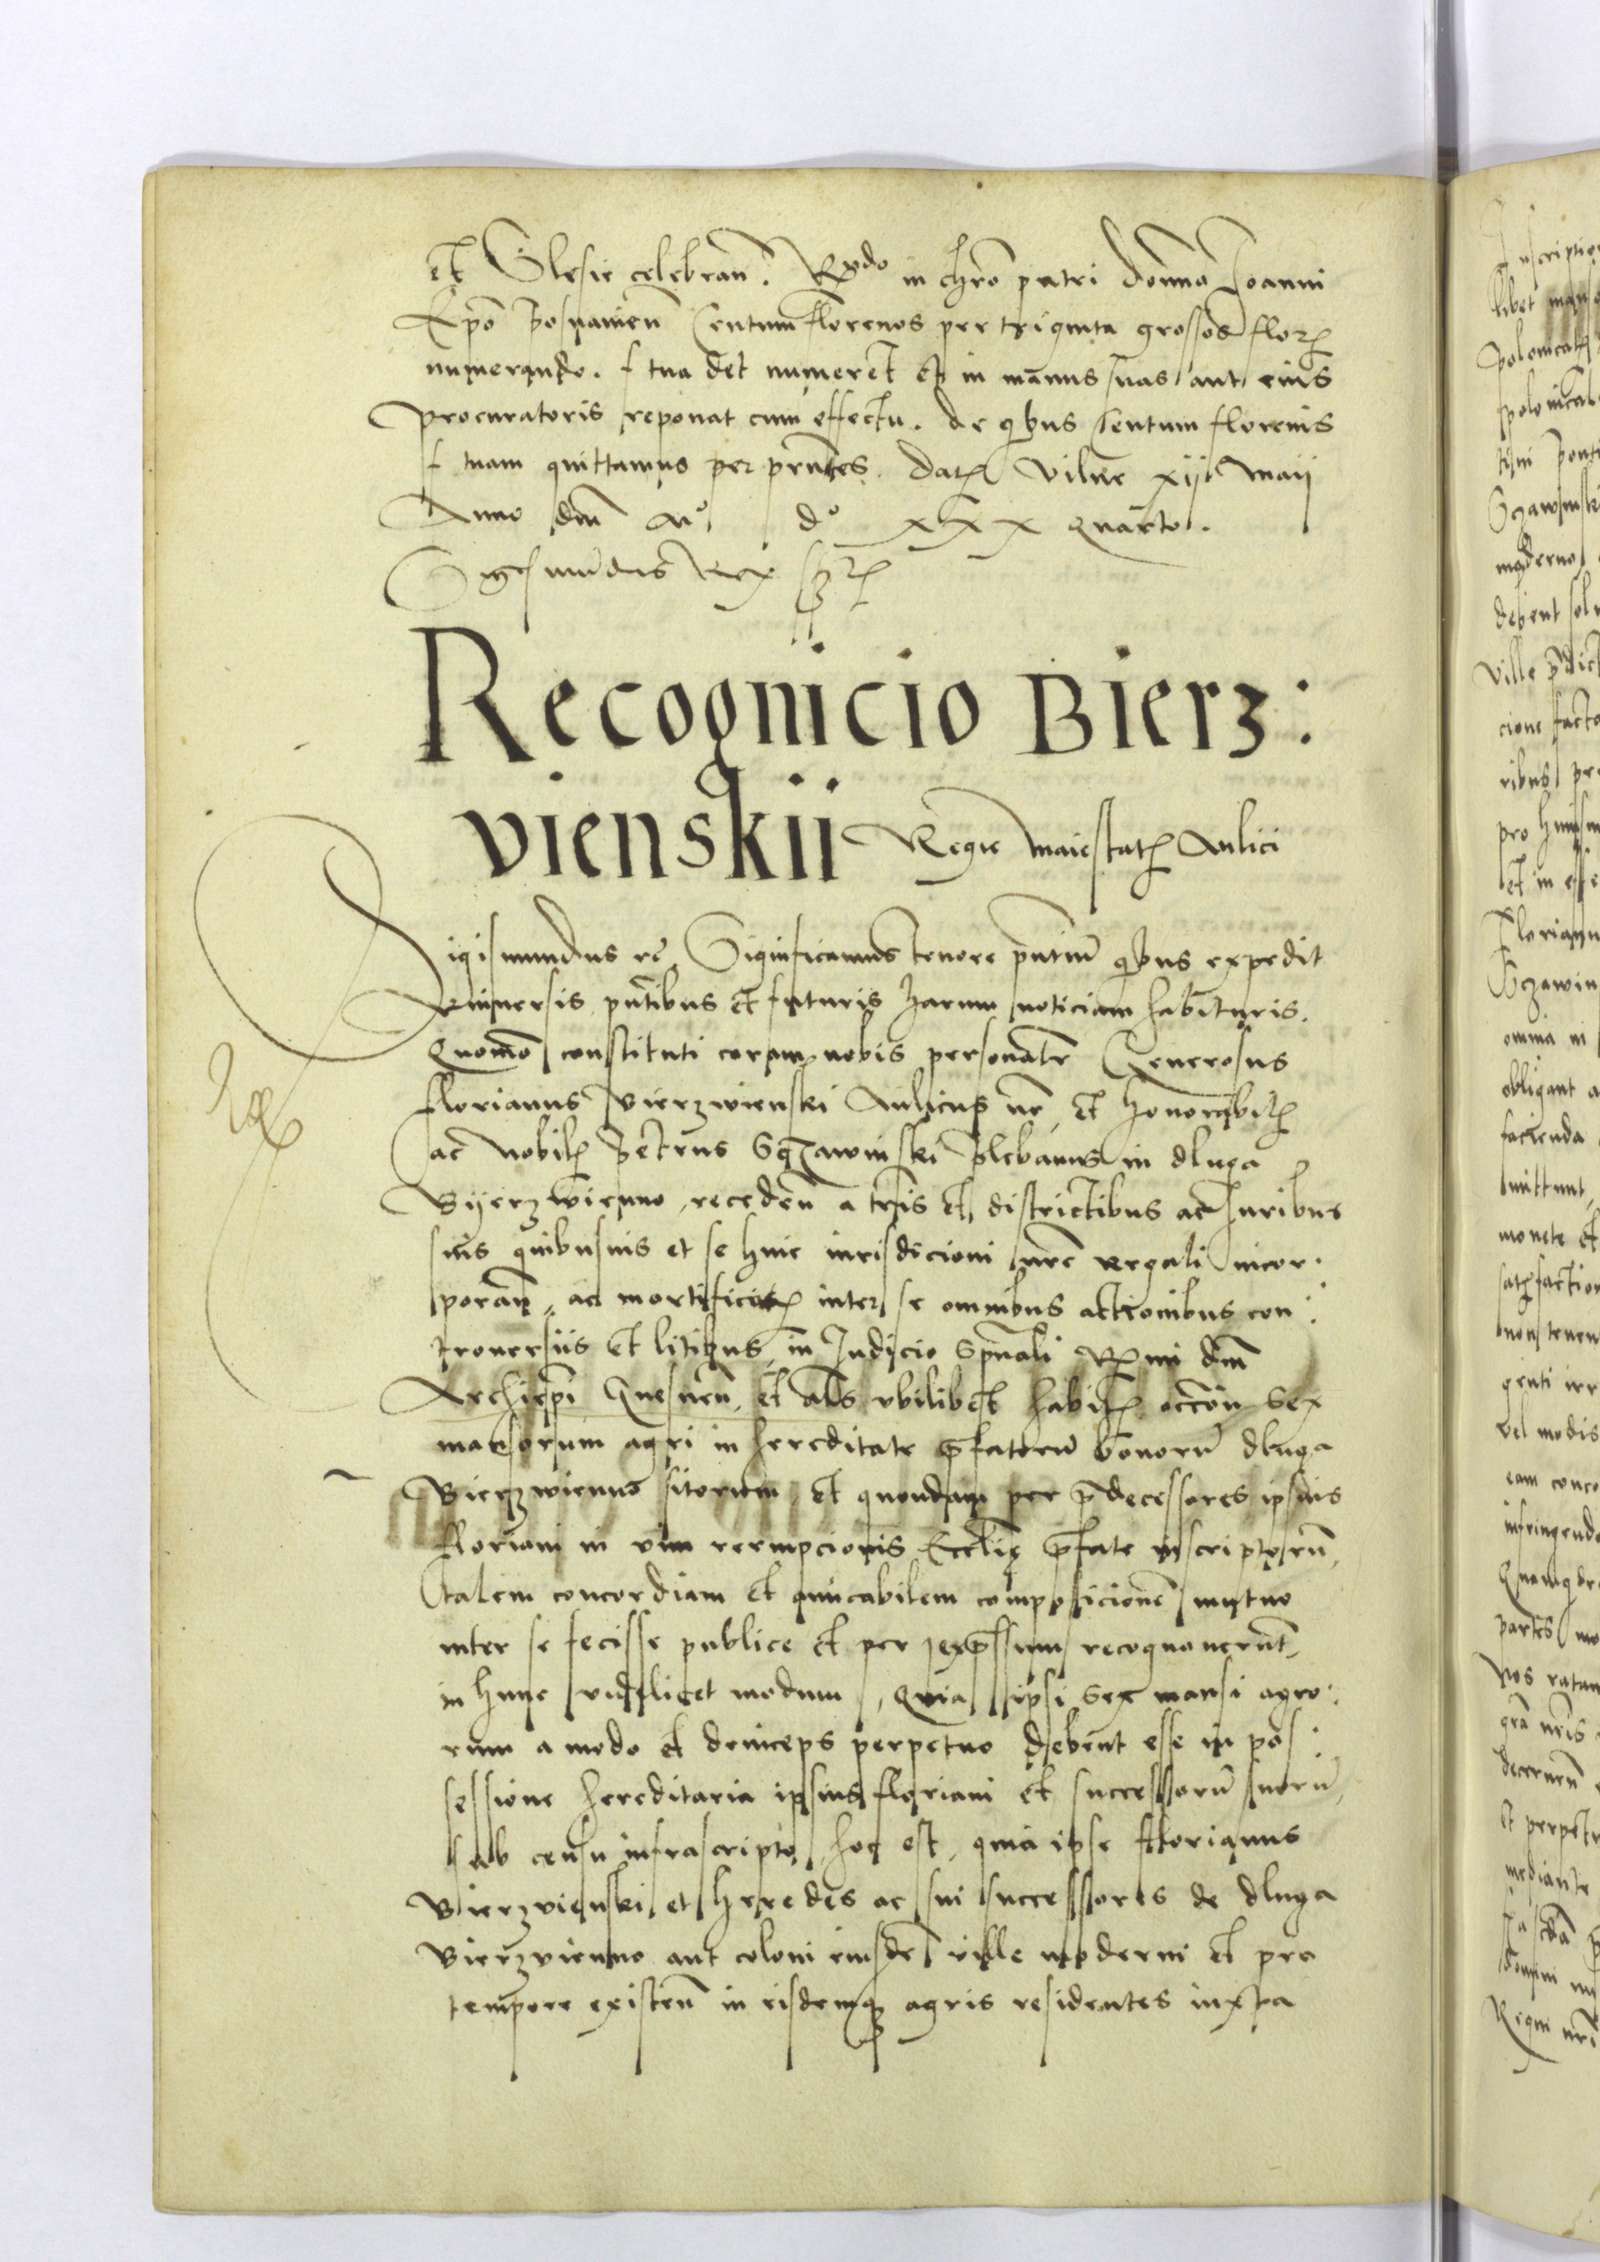 et Slesie celebran. Rndo in chro patri domno Ioanni
Epo Posnanien Centum florenos per triginta grossos flor
numerando. f tua det numeret et in manus suas aut eius
procuratoris reponat cum effectu. de qbus Centum florenis
f tuam quittamus per pntes. Dat Vilne xij Maii
Anno dni Mo do xxx quarto.
Sigismundus Rex sst
Recognicio Bierz:
vienskii Regie Maiestat Aulici
Sigismundus rc Significamus tenore pntium qbus expedit
vniuersis pntibus et futuris harum noticiam habituris.
Quomo constituti coram nobis personalr Generosus
florianus Vierzwienski Aulicus nr et honorabil
ac Nobil Petrus Sczawinski plebanus in dluga
Byerzwienno, receden a tris et districtibus ac Iuribus
suis quibusuis et se huic iurisdicioni nre regali incor:
poran, ac mortificat inter se omnibus actionibus con:
trouersiis et litibus, in Iudicio spuali Rmi dni
Archiepi Gnesnen, et als vbilibet habit occon sex
mansorum agri in hereditate pfatorum bonorum dluga
Bierzwienno sitorum, et quondam per pdecessores ipsius
floriani in vim reempcionis Ecclie pfate inscriptorum,
talem concordiam et amicabilem composicionem mutuo
inter se fecisse publice et per expssum recognouerunt,
in hunc videlicet modum, Quia ipsi sex mansi agro:
rum a modo et deinceps perpetuo debent esse in pos:
sessione hereditaria ipsius floriani et successorum suorum,
sub censu infrascripto, hoc est, quia ipse florianus
Bierzvienski et heredes ac sui successores de dluga
Bierzvienno aut coloni eiusdem ville moderni et pro
tempore existen in eisdemq agris residentes iuxta